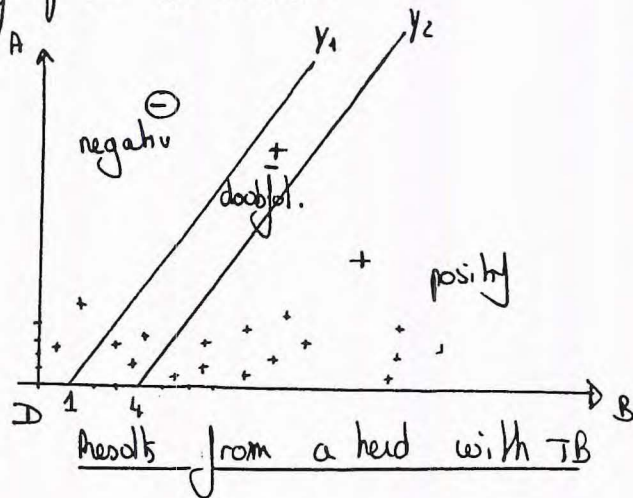 A
y1
y2
⊖
negativ
±
doubtol.
+
positiv
D
1
4
B
Results from a herd with TB